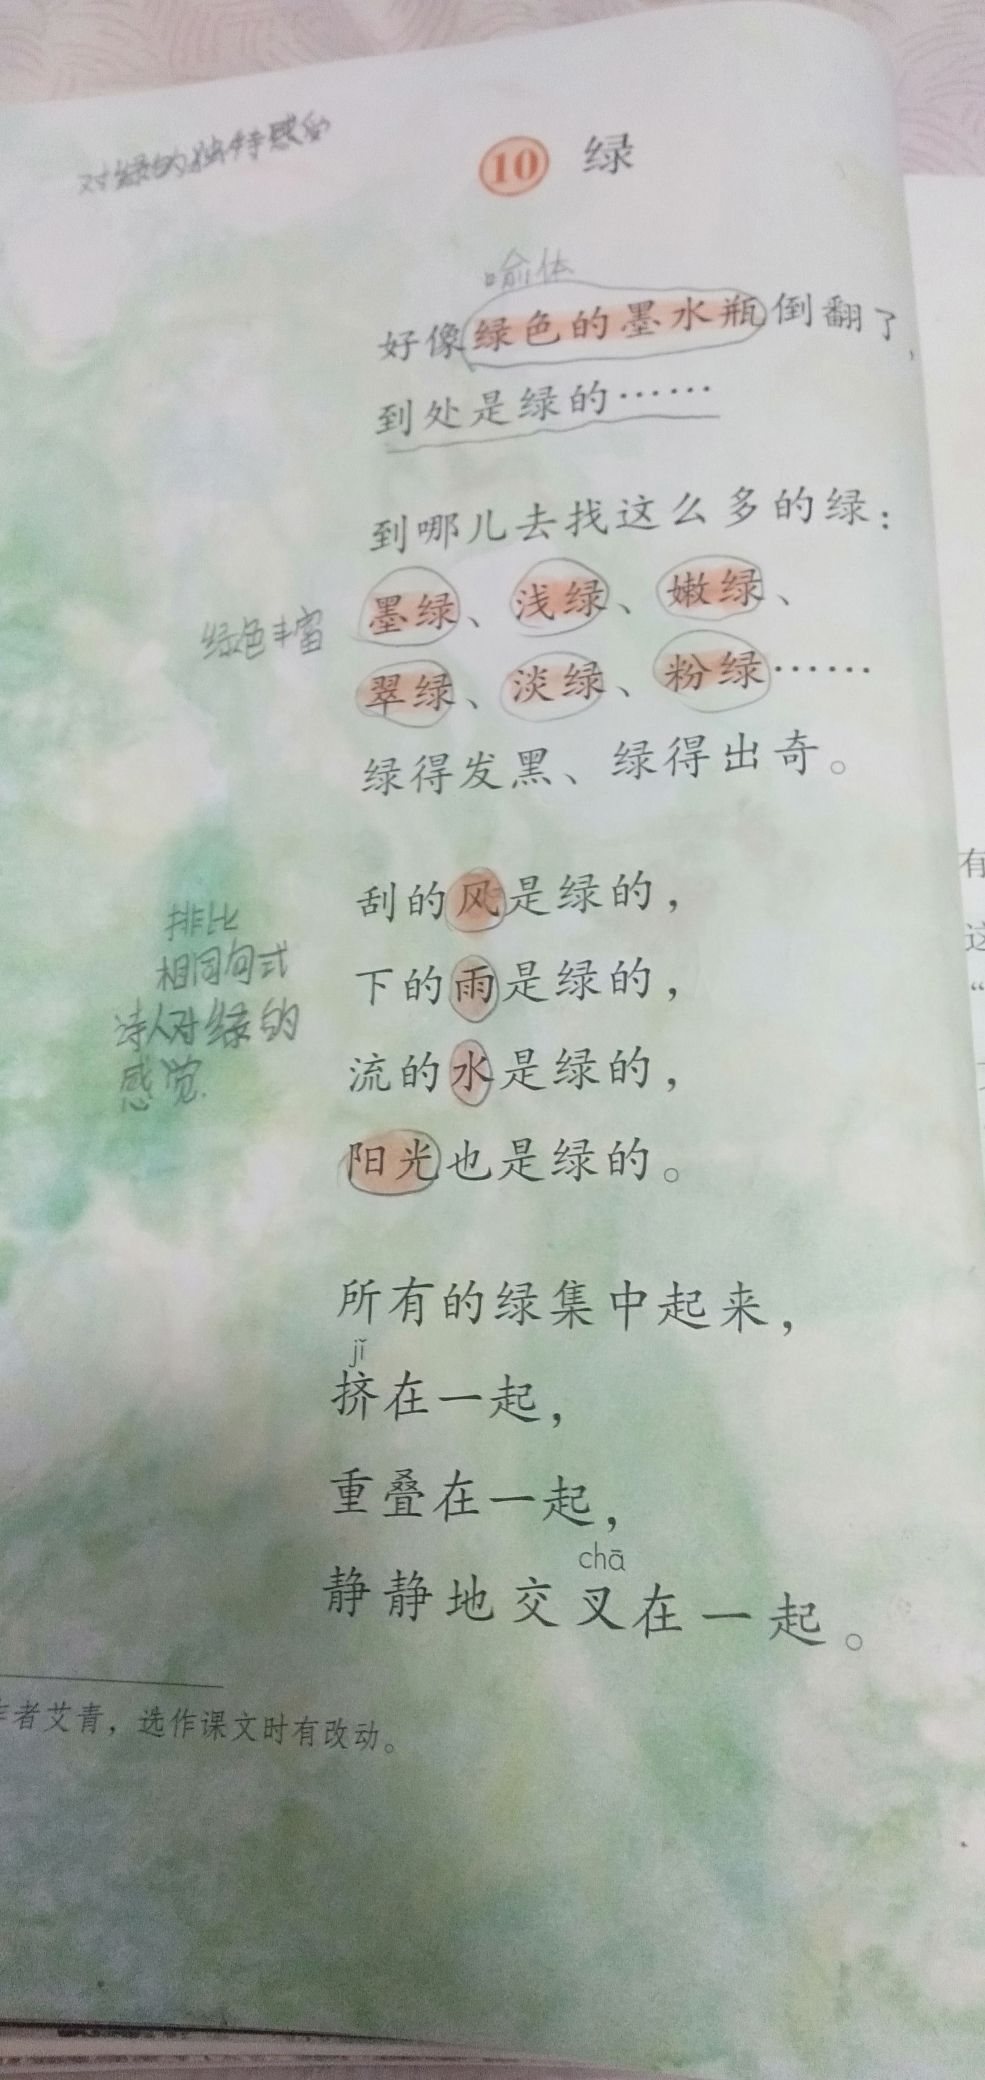 对绿的独特感受
10 绿
喻体
好像绿色的墨水瓶倒翻了，
到处是绿的……
到哪儿去找这么多的绿：
墨绿、浅绿、嫩绿、
绿色丰富
翠绿、淡绿、粉绿……
绿得发黑、绿得出奇。
刮的风是绿的，
排比
相同句式
诗人对绿的
感觉.
下的雨是绿的，
流的水是绿的，
阳光也是绿的。
所有的绿集中起来，
jǐ
挤在一起，
重叠在一起，
chā
静静地交叉在一起。
者艾青，选作课文时有改动。
有
这
“